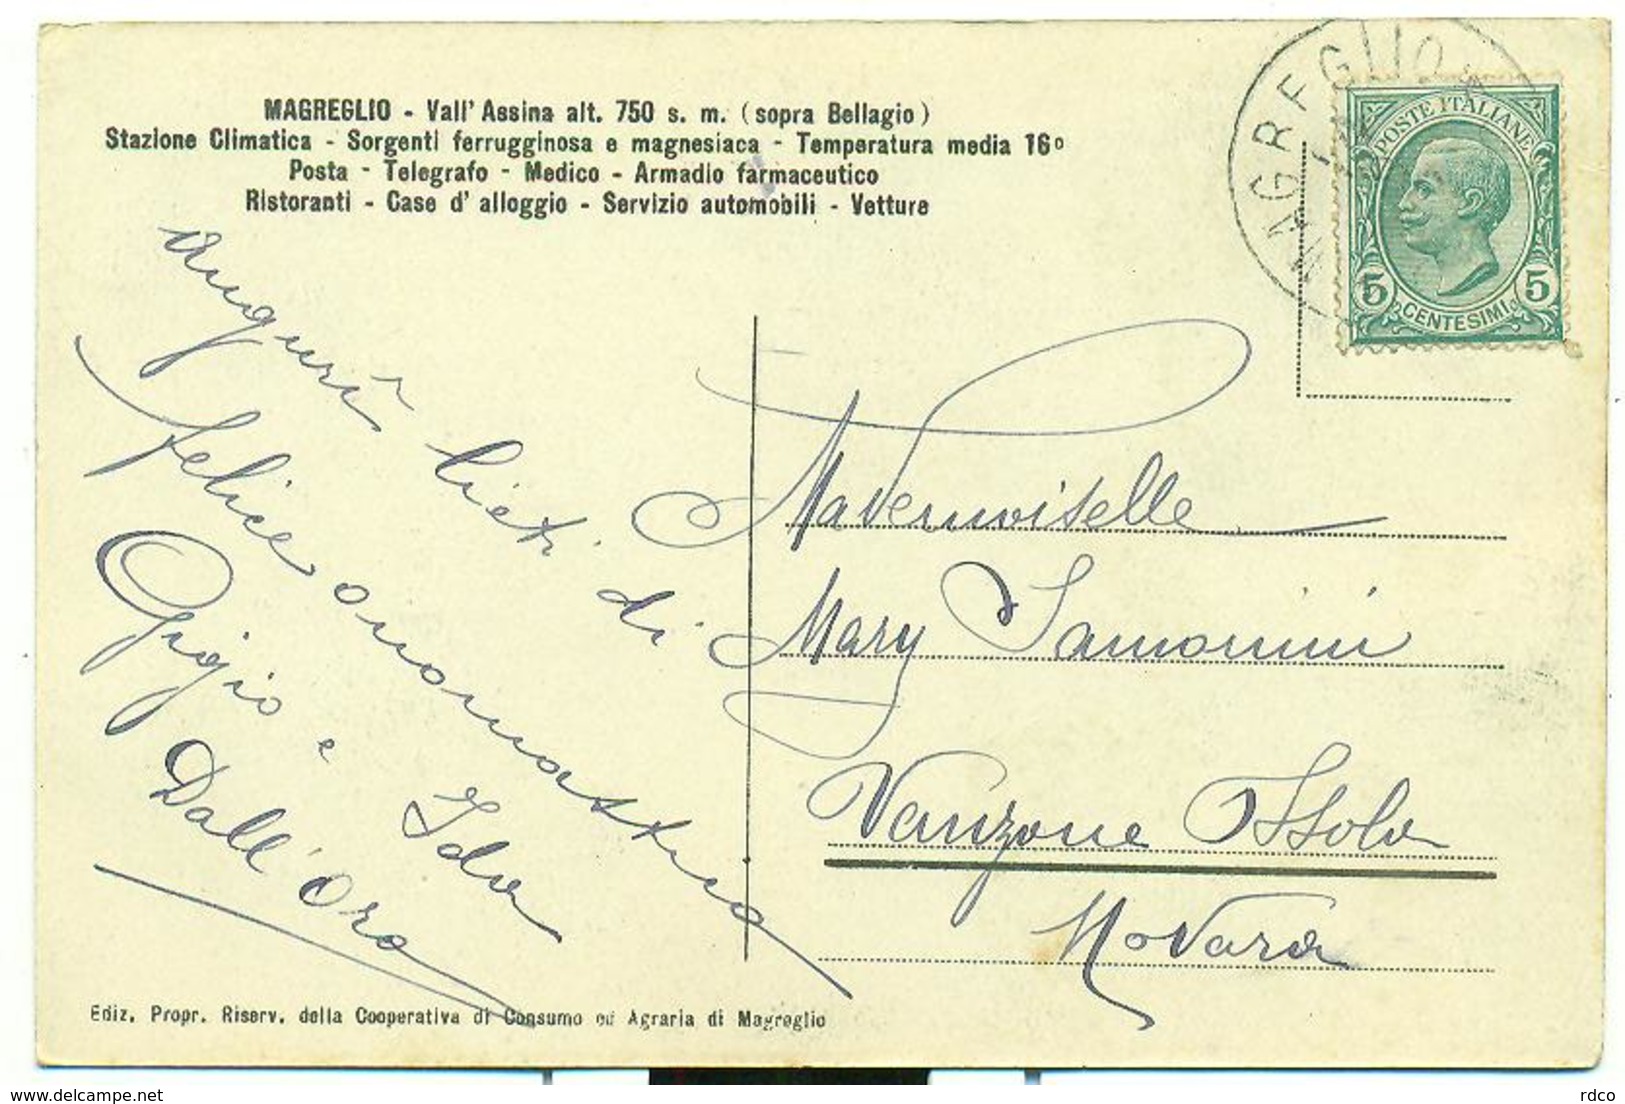 MAGREGLIO - Vall' Assina alt. 750 s. m. (sopra Bellagio)
Stazione Climatica - Sorgenti ferrugginosa e magnesiaca - Temperatura media 16º
Posta - Telegrafo - Medico - Armadio farmaceutico
Ristoranti - Case d' alloggio - Servizio automobili - Vetture
MAGREGLIO
POSTE ITALIANE
5 CENTESIMI 5
Auguri lieti di
felice onomastico
Gigio e Ida
Dall'Oro
Mademoiselle
Mary
Vanzone
Novara
Ediz. Propr. Riserv. della Cooperativa di Consumo ed Agraria di Magreglio
rdco